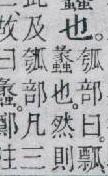 也。
瓠部曰。瓢
蠡也。然則
及瓠部凡三
故曰蠡。鄭注